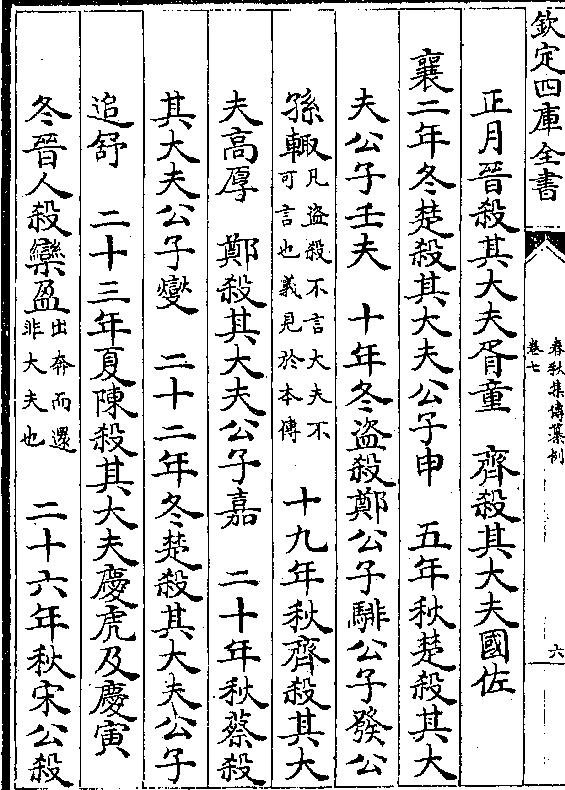 欽定四庫全書
春秋集傳纂例
卷七
六
正月晉殺其大夫胥童　齊殺其大夫國佐
襄二年冬楚殺其大夫公子申　五年秋楚殺其大
夫公子壬夫　十年冬盜殺鄭公子騑公子發公
孫輒凡盜殺不言大夫不可言也義見於本傳　十九年秋齊殺其大
夫高厚　鄭殺其大夫公子嘉　二十年秋蔡殺
其大夫公子燮　二十二年冬楚殺其大夫公子
追舒　二十三年夏陳殺其大夫慶虎及慶寅
冬晉人殺欒盈出奔而還非大夫也　二十六年秋宋公殺